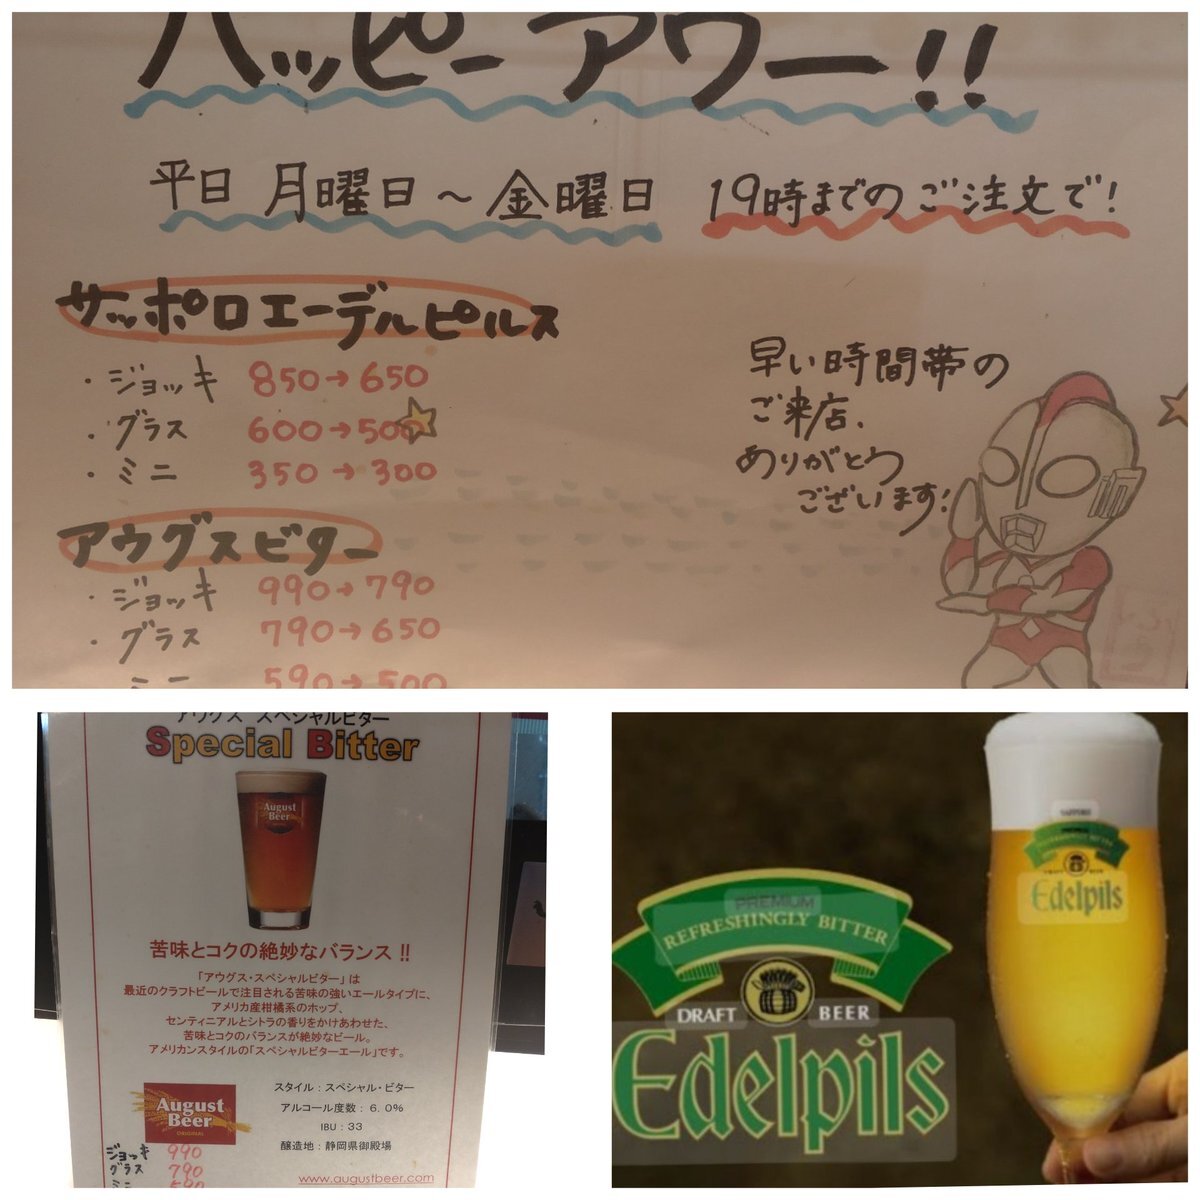 ハッピーアワー!!
平日 月曜日～金曜日 19時までのご注文で!
サッポロエーデルピルス
・ジョッキ 850→650
・グラス 600→500
・ミニ 350→300
アウグスビター
・ジョッキ 990→790
・グラス 790→650
・ミニ 590→500
早い時間帯の
ご来店、
ありがとう
ございます!
アウグス スペシャルビター
Special Bitter
August
Beer
苦味とコクの絶妙なバランス!!
「アウグス・スペシャルビター」は
最近のクラフトビールで注目される苦味の強いエールタイプに、
アメリカ産柑橘系のホップ、
センティニアルとシトラの香りをかけあわせた、
苦味とコクのバランスが絶妙なビール。
アメリカンスタイルの「スペシャルビターエール」です。
August
Beer
ORIGINAL
スタイル：スペシャル・ビター
アルコール度数：6.0%
IBU：33
醸造地：静岡県御殿場
ジョッキ 990
グラス 790
ミニ 590
www.augustbeer.com
PREMIUM
REFRESHINGLY BITTER
DRAFT BEER
Edelpils
SAPPORO
PREMIUM
REFRESHINGLY BITTER
DRAFT BEER
Edelpils